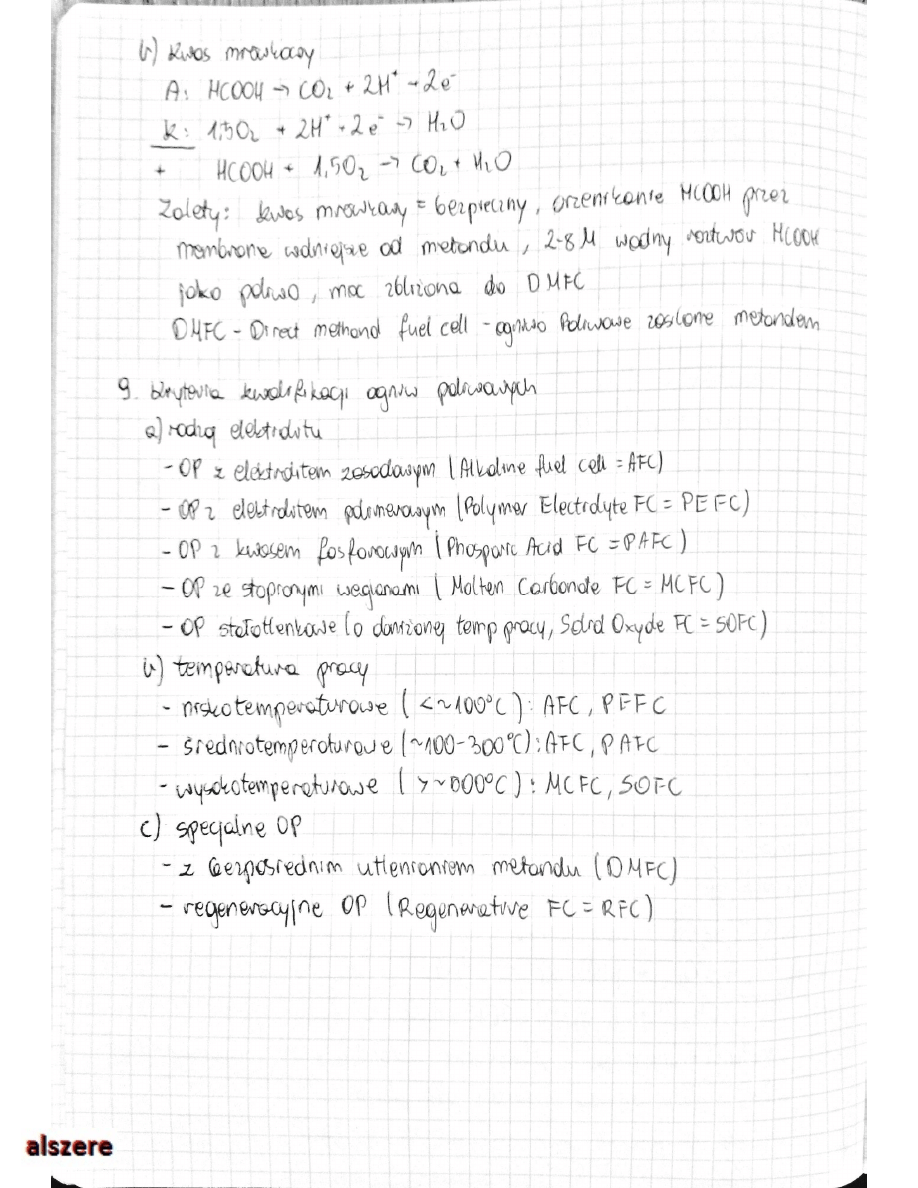 b) kwas mrówkowy
A: HCOOH → CO₂ + 2H⁺ + 2e⁻
K: 1,5O₂ + 2H⁺ + 2e⁻ → H₂O
+ HCOOH + 1,5O₂ → CO₂ + H₂O
Zalety: kwas mrówkowy = bezpieczny, przenikanie HCOOH przez
membranę wolniejsze od metanolu, 2-8 M wodny roztwór HCOOH
jako paliwo, moc zbliżona do DMFC
DMFC - Direct methanol fuel cell - ogniwo paliwowe zasilane metanolem
9. Kryteria kwalifikacji ogniw paliwowych
a) rodzaj elektrolitu
- OP z elektrolitem zasadowym (Alkaline fuel cell = AFC)
- OP z elektrolitem polimerowym (Polymer Electrolyte FC = PEFC)
- OP z kwasem fosforowym (Phosporic Acid FC = PAFC)
- OP ze stopionymi węglanami (Molten Carbonate FC = MCFC)
- OP stałotlenkowe (o obniżonej temp pracy, Solid Oxyde FC = SOFC)
b) temperatura pracy
- niskotemperaturowe (<~100°C): AFC, PEFC
- średniotemperaturowe (~100-300°C): AFC, PAFC
- wysokotemperaturowe (>~600°C): MCFC, SOFC
c) specjalne OP
- z bezpośrednim utlenianiem metanolu (DMFC)
- regeneracyjne OP (Regenerative FC = RFC)
alszere